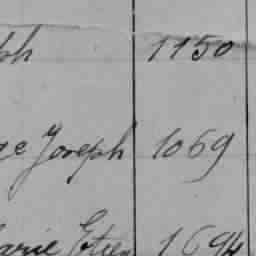 ph 1150
ge Joseph 1069
arie Etien 1694